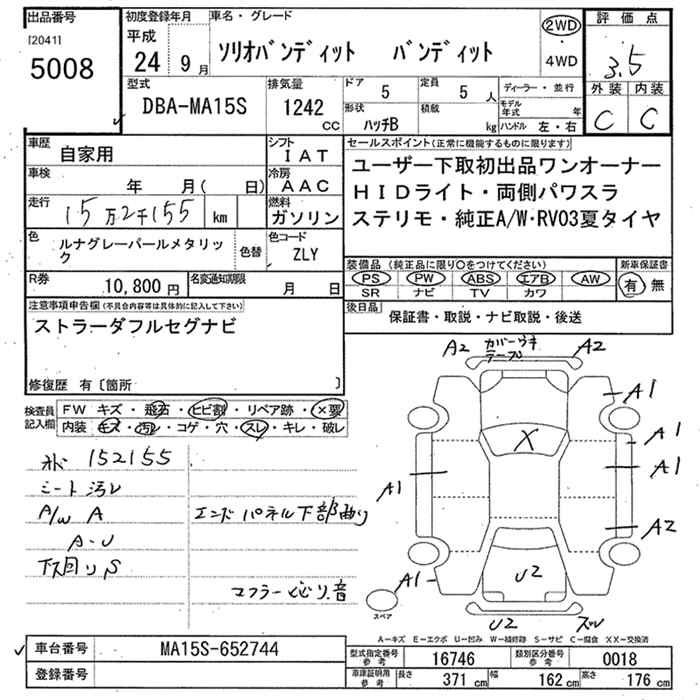 出品番号 初度登録年月 車名・グレード 2WD 評価点
[2041] 平成
5008 24 9月 ソリオバンディット バンディット 4WD 3.5
型式 排気量 ドア 5 定員 5人 ディーラー・並行 外装 内装
DBA-MA15S 1242 CC 形状 ハッチB 積載 kg モデル年式 年 C C
ハンドル 左・右
車歴 自家用 シフト IAT セールスポイント(正常に機能するものに限ります)
車検 年 月(日) 冷房 AAC ユーザー下取初出品ワンオーナー
走行 15万2千155 km 燃料 ガソリン HIDライト・両側パワスラ
ステリモ・純正A/W・RV03夏タイヤ
色 ルナグレーパールメタリック 色替 色コード ZLY
装備品(純正品に限り○をつけてください) 新車保証書
R券 10,800円 名変通知期限 月 日 PS PW ABS エアB AW 有 無
SR ナビ TV カワ
注意事項申告欄(不具合内容等は具体的に記入して下さい) 後日品 保証書・取説・ナビ取説・後送
ストラーダフルセグナビ
修復歴 有〔箇所 〕
A2 カバーウキ テープ A2
検査員記入欄 FW キズ・飛石・ヒビ割・リペア跡・×要
内装 キズ・汚レ・コゲ・穴・スレ・キレ・破レ
A1
A1
X
A1
A1
A2
A1
U2
U2 スレ
スペア
メーター 152155
シート汚レ
A/W A エンドパネル下部曲り
A-U
下回りS
マフラー
A-キズ E-エクボ U-凹み W-補修跡 S-サビ C-腐食 XX-交換済
車台番号 MA15S-652744 型式指定番号 参考 16746 類別区分番号 参考 0018
登録番号 車庫証明用 参考 長さ 371 cm 幅 162 cm 高さ 176 cm